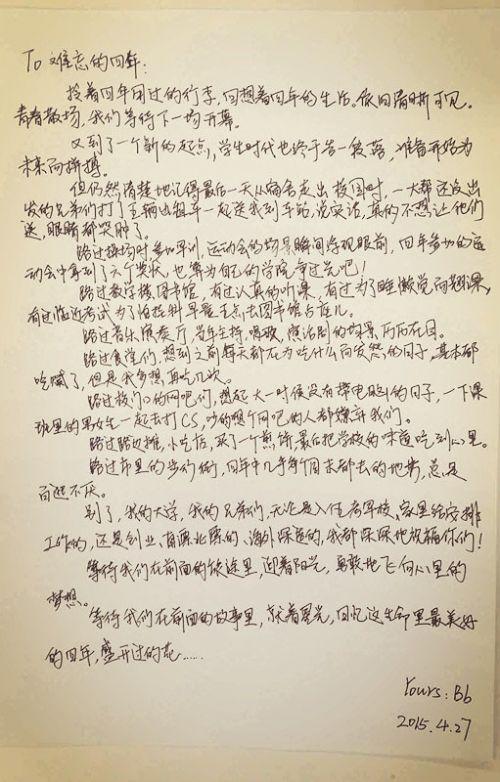 To 难忘的四年:
拎着四年用过的行李,回想着四年的生活。依旧清晰可见。
青春散场,我们等待下一场开幕。
又到了一个新的起点,学生时代也终于告一段落,准备开始为
未来而拼搏。
但仍然清楚地记得最后一天从宿舍走出校园时,一大帮还没出
发的兄弟们打了五辆出租车一起送我到车站,说实话,真的不想让他们
送,眼睛都哭肿了。
路过操场时,参加军训,运动会的场景瞬间浮现眼前,四年参加的运
动会中拿到了六个奖状,也算为自己的学院争过光吧!
路过教学楼图书馆,有过认真的听课,有过为了睡懒觉而翘课,
有过临近考试为了怕挂科早晨五点去图书馆占座儿。
路过音乐演奏厅,当年主持,唱歌,演话剧的场景历历在目。
路过食堂们,想到之前每天都在为吃什么而发愁的日子,基本都
吃腻了,但是我多想再吃几次。
路过校门口的网吧们,想起大一时候没有带电脑的日子,一下课
班里的男女生一起去打CS,吵的整个网吧的人都嫌弃我们。
路过路边摊,小吃店,买了一个煎饼,最后把学校的味道吃到心里。
路过市里的步行街,四年中几乎每个周末都去的地势,总是
百逛不厌。
别了,我的大学,我的兄弟们,无论是入伍考军校、家里给安排
工作的,还是创业、南漂北漂的、海外深造的,我都深深地祝福你们!
等待我们在前面的旅途里,迎着阳光,勇敢地飞向心里的
梦想。
等待我们在前面的故事里,就着星光,回忆这生命里最美好
的四年,盛开过的花……
Yours: Bb
2015.4.27